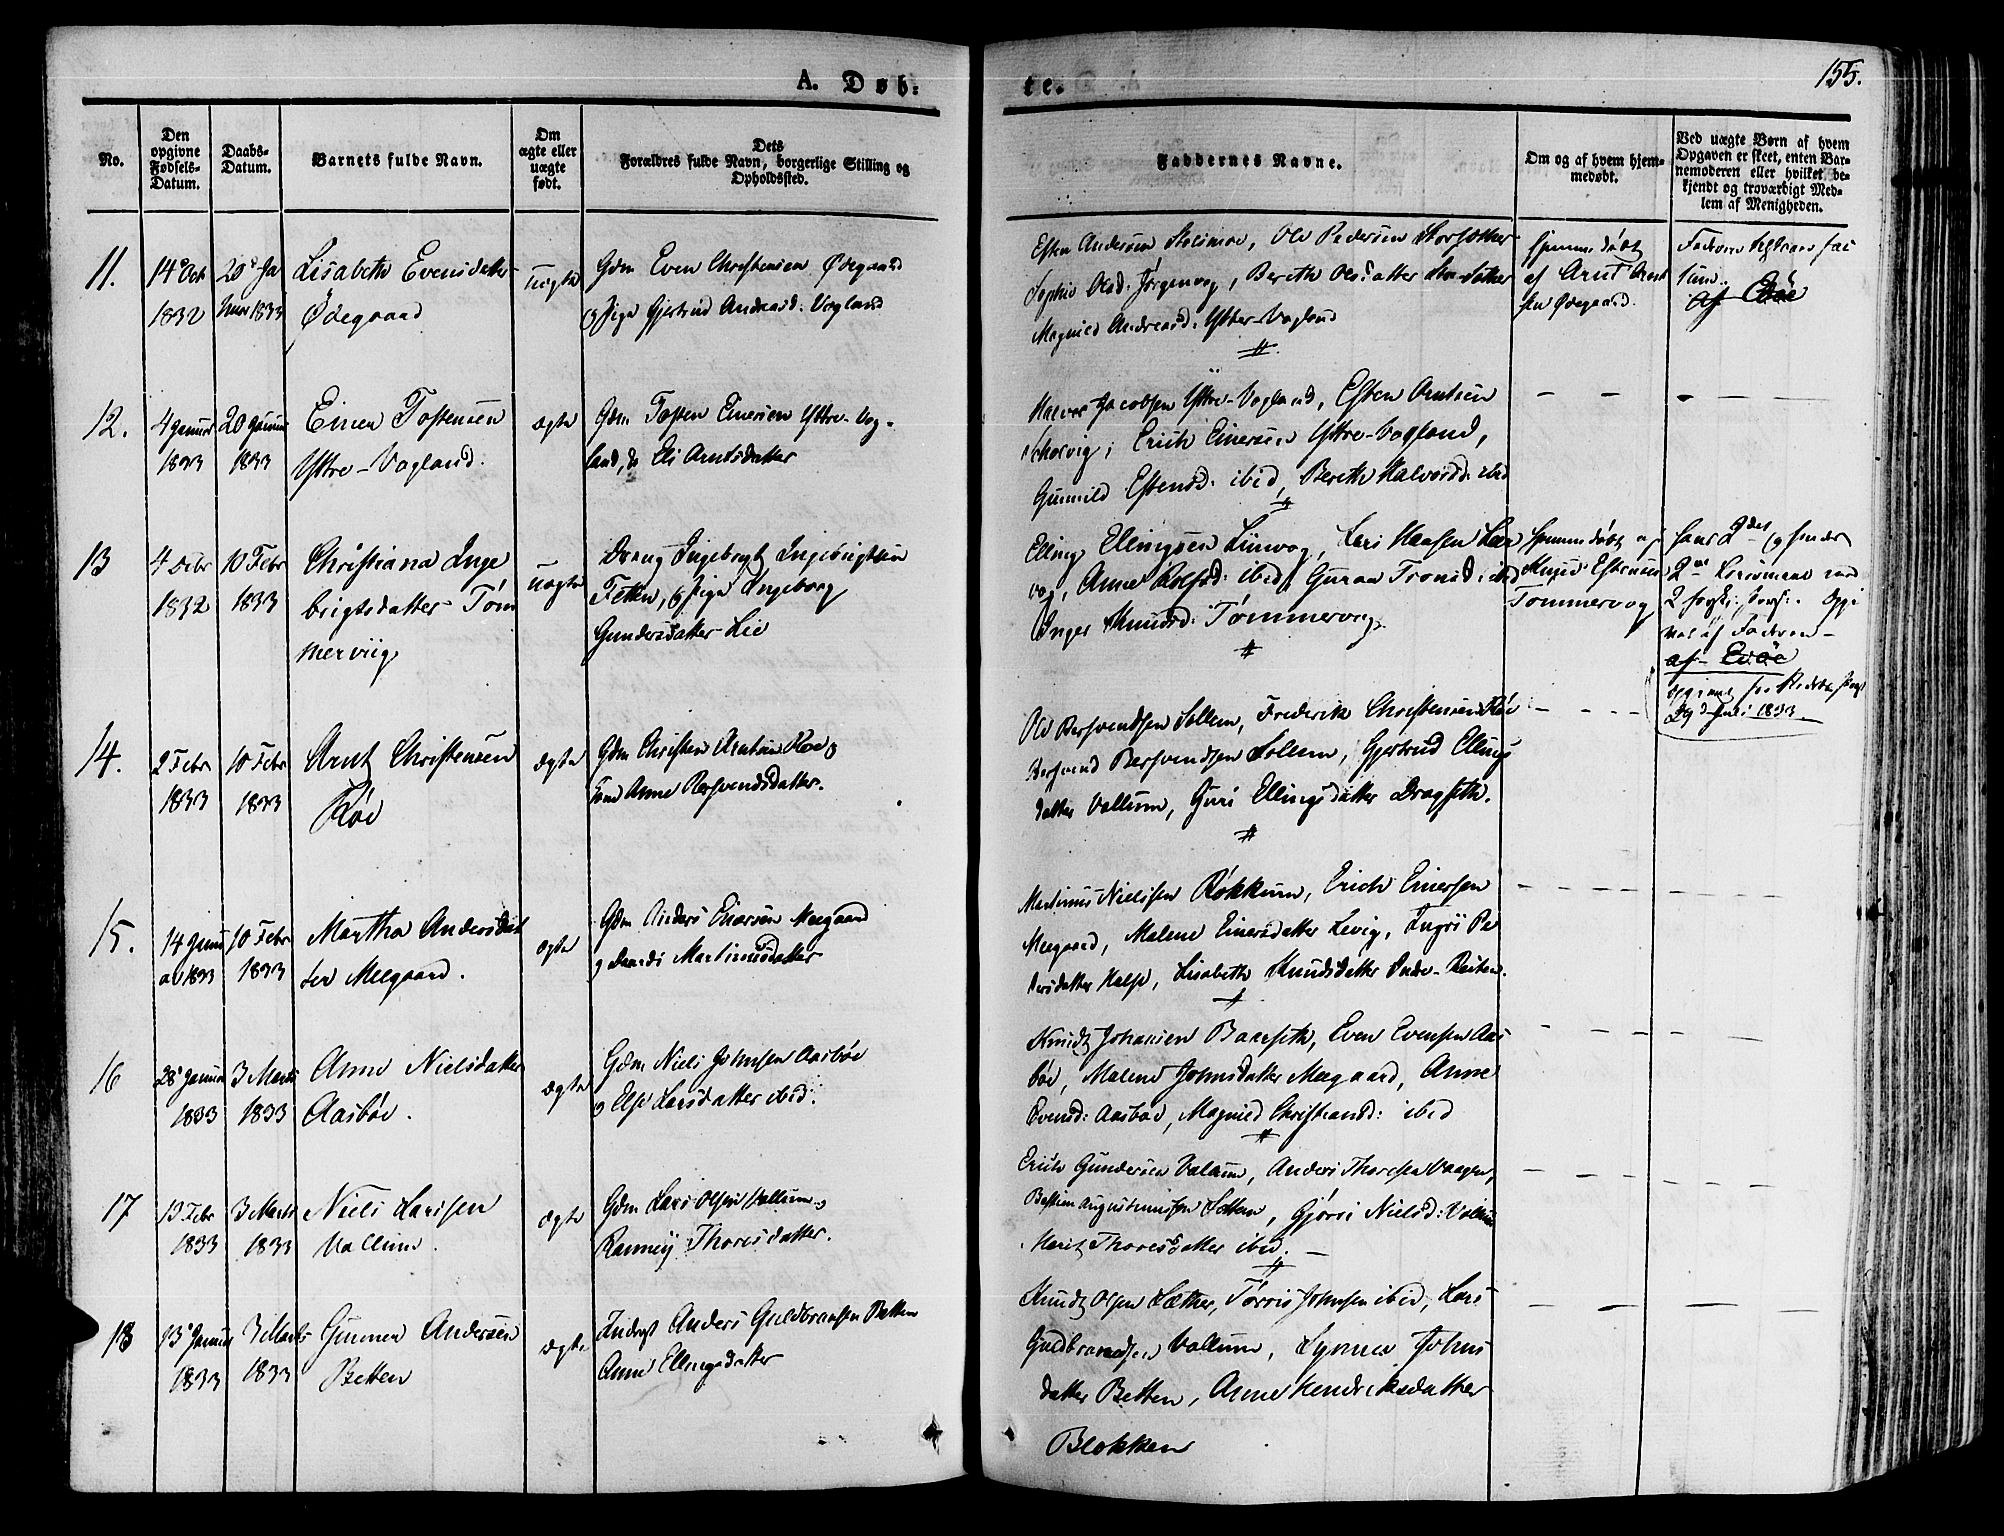 155.
A. Døb-
te.
No.
Den opgivne Fødsels-Datum.
Daabs-Datum.
Barnets fulde Navn.
Om ægte eller uægte født.
Dets Forældres fulde Navn, borgerlige Stilling og Opholdssted.
Faddernes Navne.
Om og af hvem hjem-medøbt.
Ved uægte Børn af hvem Opgaven er skeet, enten Bar-nemoderen eller hvilket be-kjendt og troværdigt Med-lem af Menigheden.
11.
14 Oct
1832
20 Ja
nuar 1833
Lisabeth Evensdatter
Ødegaard
uægte
Gdm Even Christensen Ødegaard
Pige Gjertrud Andreasd: Vogland
Esten Andersen Ole Pedersen
Sophie Olsd: Jørgenvog, Bereth Olsdatter
Magnild Andreasd: Ytter-Vogland
hjemmedøbt
af Arnt Arnt
sen Ødegaard.
12.
4 Januar
1833
20 Januar
1833
Einer Tostensen
Yttre-Vogland.
ægte
Gdm Tosten Einersen Yttre-Vog-
land, Eli Arntsdatter
Halvor Jacobsen Yttre-Vogland, Esten Arntsen
Erich Einersen Yttre-Vogland,
Gunnild Estensd: ibid, Bereth Halvorsd: ibid
13
4 Decbr
1832
10 Febr
1833
Christiana Inge
brigtsdatter Tøm
merviig
uægte
Dreng Ingebrigt Ingebrigtsen
Pige Ingeborg
Gundersdatter Lie
Elling Ellingsen Linvog, Lars Hansen Lin
vog, Anne Rolfsd: ibid, Guran Tronsd: ibid
Inger Knudsd: Tømmervog
hjemmedøbt af
Knud Estensen
Tømmervog
hans 2det og hendes
2det Leiermaal med
2
af Faderen
29de Juni 1833
14.
2 Febr
1833
10 Febr
1833
Arnt Christensen
Røe
ægte
Gdm Christen Arntsen Røe og
Kone Anne Bersvendsdatter.
Ole Bersvendsen Sollem, Frederik Christensen Røe
Bersvend Bersvendsen Sollem, Gjertrud Ellings
datter Vollum, Guri Ellingsdatter Dragseth.
15.
14 Janu
ar 1833
10 Febr
1833
Martha Andersdat
ter Meegaard.
ægte
Gdm Anders Einersen Meegaard
Martinusdatter
Martinus Nielssen Røkkum, Erich Einersen
Meegaard, Malene Einersdatter Levig, Ingri Pe
dersdatter Halse, Lisabeth Knudsdatter Indre-Reiten.
16
28 Januar
1833
3 Marts
1833
Anne Nielsdatter
Aasbøe.
ægte
Gdm Niels Johnsen Aasbøe
og Else Larsdatter ibid.
Knudt Johansen Bareseth, Even Evensen Aas
bøe, Malene Johnsdatter Meegaard, Anne
Evensd: Aasbøe, Magnild Christiansd: ibid
17
13 Febr
1833
3 Marts
1833
Niels Larssen
Vollum.
ægte
Gdm Lars Olsen Vollum og
Ranney Thoresdatter.
Erich Gundersen Vollum, Anders Thoresen Vaagen,
Bastian Augustinussen Gjøri Nielsd: Vollum
Marit Thoresdatter ibid.
18
13 Januar
1833
3 Marts
1833
Gunner Andersen
Betten
ægte
Inderst Anders Guldbrandsen Betten
Anne Ellingsdatter
Knudt Olsen Sæther, Tørris Johnsen ibid, Lars
Guldbrandsen Vollum, Johns
datter Betten, Anne Hendriksdatter
Blokken